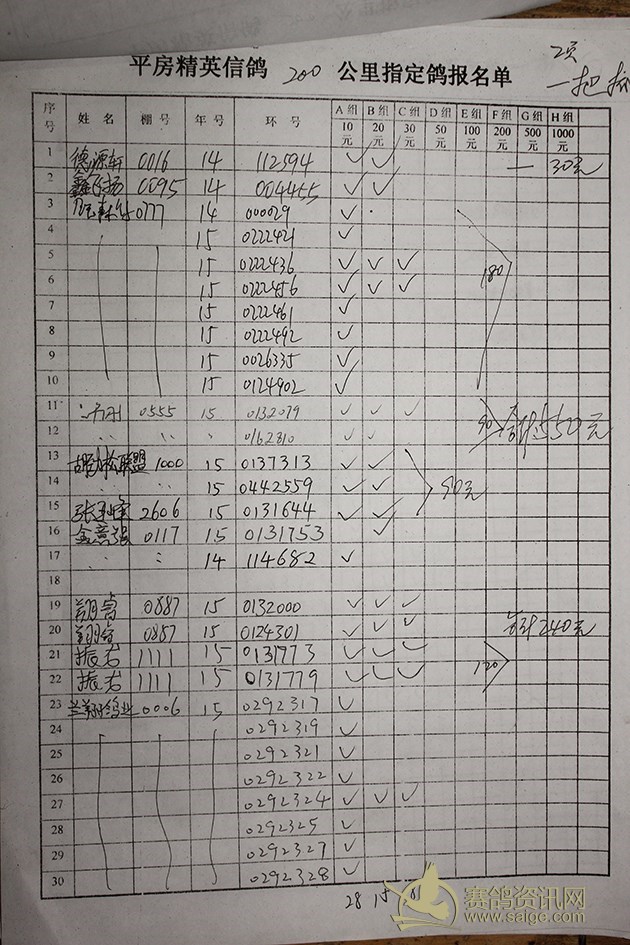 2页
平房精英信鸽 200 公里指定鸽报名单
一把
序号 姓名 棚号 年号 环号 A组 B组 C组 D组 E组 F组 G组 H组
10元 20元 30元 50元 100元 200元 500元 1000元
1 德源轩 0016 14 112594 ✓ ✓ — 30元
2 鑫飞扬 0095 14 004455 ✓ ✓
3 0777 14 000029 ✓
4 15 0222421 ✓
5 15 0222436 ✓ ✓ ✓
6 15 0222456 ✓ ✓ ✓ 180
7 15 0222461 ✓
8 15 0222492 ✓
9 15 0026335 ✓
10 15 0124902 ✓
11 0555 15 0132079 ✓ ✓ ✓ 90 合计550元
12 0162310 ✓ ✓
13 联盟 1000 15 0137313 ✓ ✓
14 15 0442559 ✓ ✓ 90元
15 2606 15 0131644 ✓ ✓
16 金意强 0117 15 0131753 ✓
17 14 114682 ✓
18
19 翔宇 0887 15 0132000 ✓ ✓ ✓
20 翔宇 0887 15 0124301 ✓ ✓ ✓ 共计240元
21 振君 1111 15 0131773 ✓ ✓ ✓
22 振君 1111 15 0131779 ✓ ✓ ✓ 120
23 兰翔鸽业 0006 15 0292317 ✓
24 0292319 ✓
25 0292321 ✓
26 0292322 ✓
27 0292324 ✓ ✓ ✓
28 0292325 ✓
29 0292327 ✓
30 0292328 ✓
28 15 8
赛鸽资讯网
www.saige.com